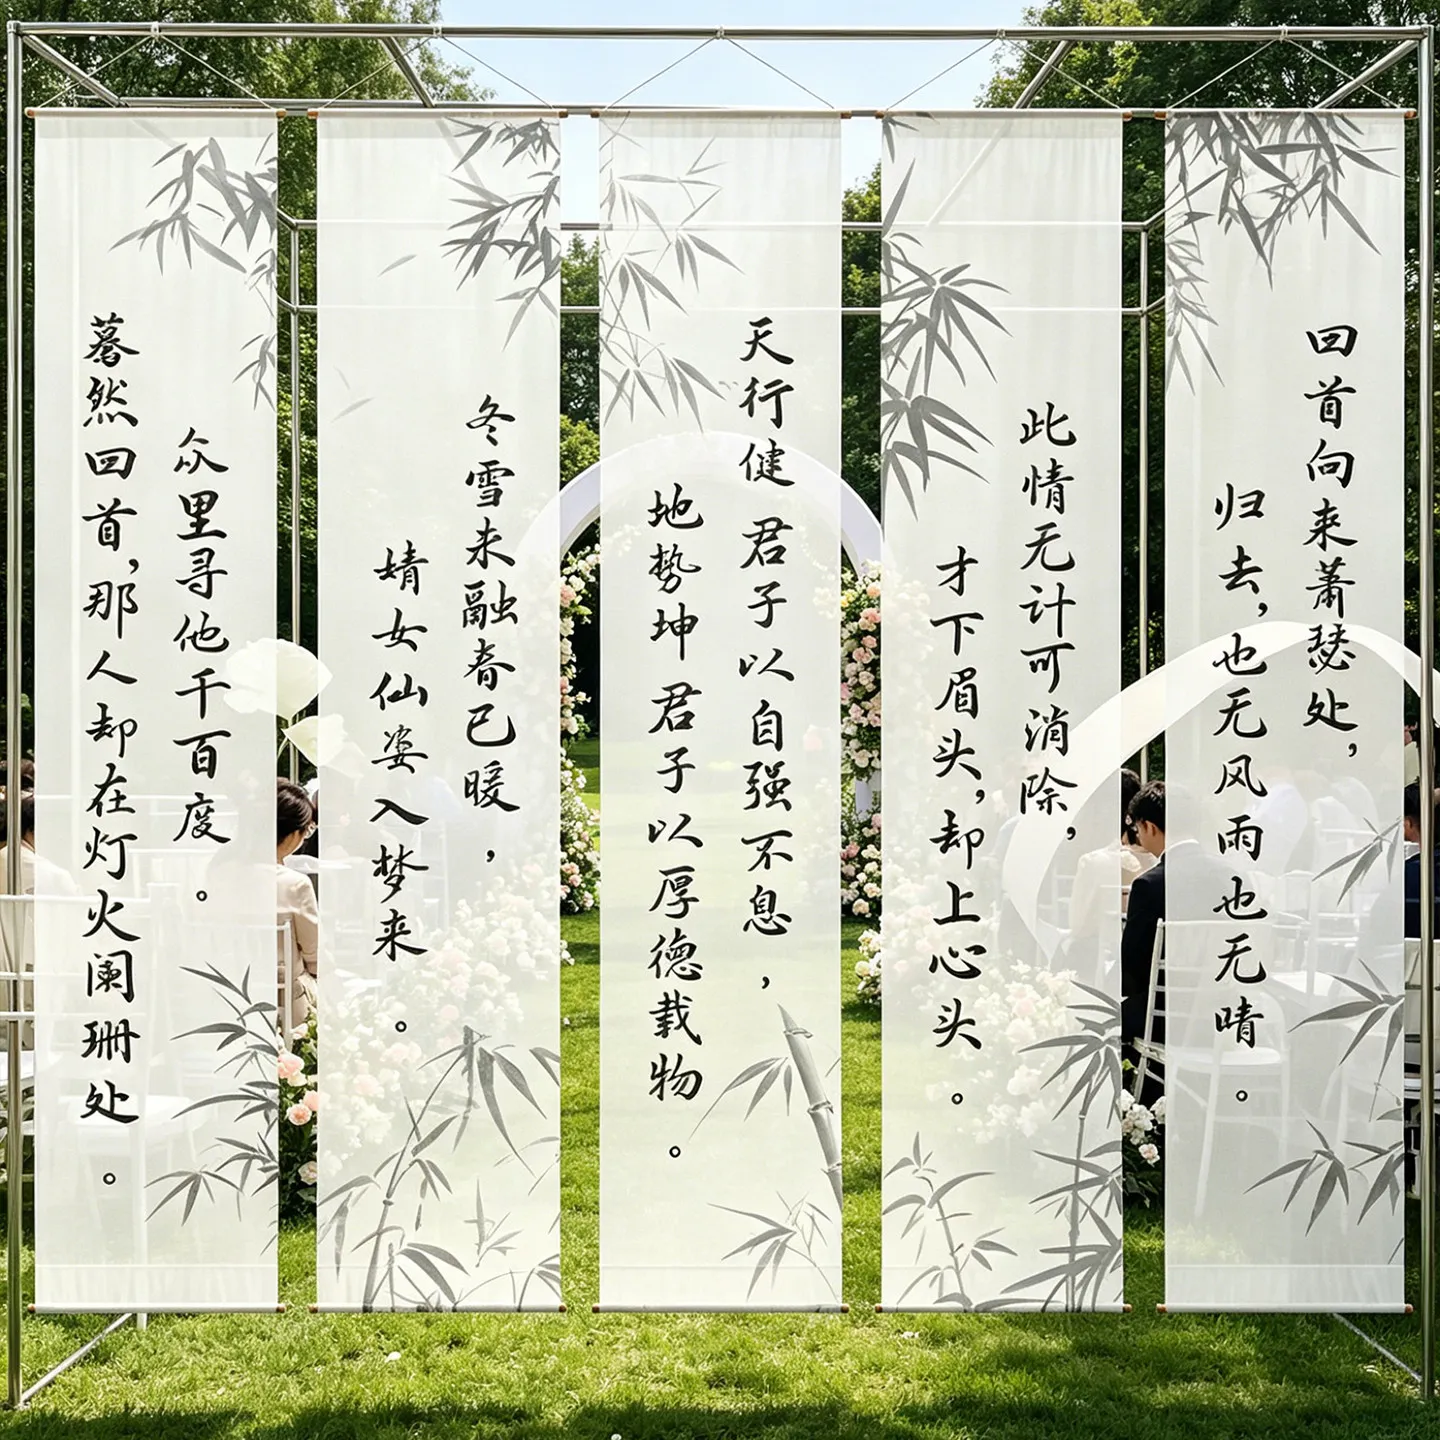 回首向来萧瑟处，
归去，也无风雨也无晴。
此情无计可消除，
才下眉头，却上心头。
天行健 君子以自强不息，
地势坤 君子以厚德载物。
冬雪未融春已暖，
婧女仙姿入梦来。
众里寻他千百度。
蓦然回首，那人却在灯火阑珊处。